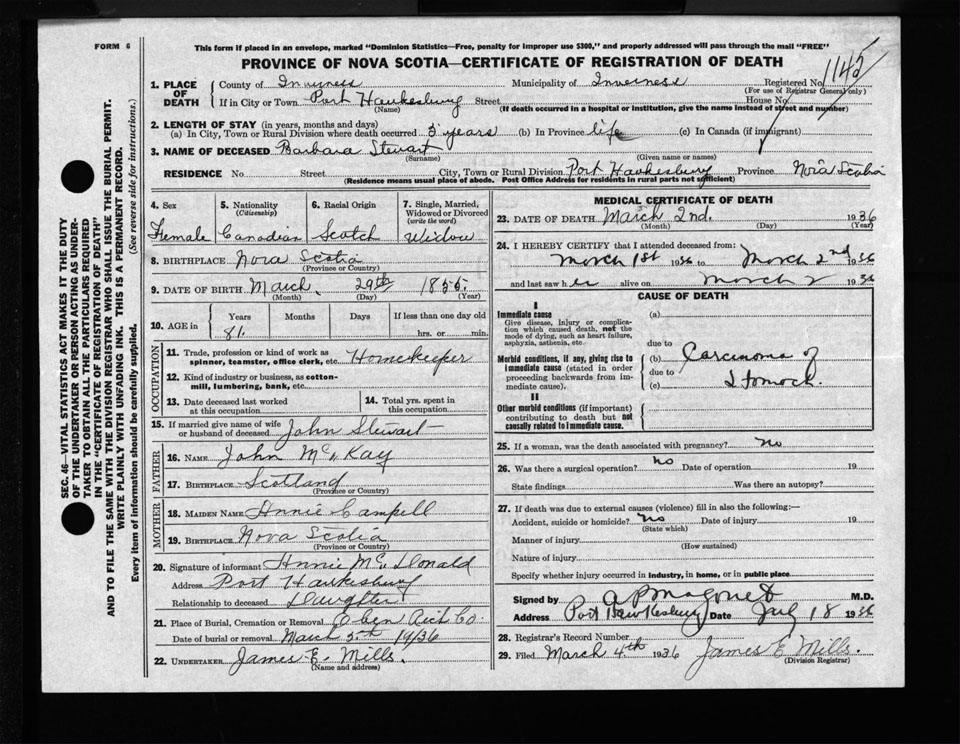 FORM 6
This form if placed in an envelope, marked "Dominion Statistics—Free, penalty for improper use $300," and properly addressed will pass through the mail "FREE"
PROVINCE OF NOVA SCOTIA—CERTIFICATE OF REGISTRATION OF DEATH
1145
1. PLACE OF DEATH
County of Inverness Municipality of Inverness Registered No.
(For use of Registrar General only)
If in City or Town Port Hawkesbury Street House No
(Name) (If death occurred in a hospital or institution, give the name instead of street and number)
2. LENGTH OF STAY (in years, months and days)
(a) In City, Town or Rural Division where death occurred 5 years (b) In Province life (c) In Canada (if immigrant)
3. NAME OF DECEASED Barbara Stewart
(Surname) (Given name or names)
RESIDENCE No. Street City, Town or Rural Division Port Hawkesbury Province Nova Scotia
(Residence means usual place of abode. Post Office Address for residents in rural parts not sufficient)
4. Sex
Female
5. Nationality
(Citizenship)
Canadian
6. Racial Origin
Scotch
7. Single, Married, Widowed or Divorced
(write the word)
Widow
8. BIRTHPLACE Nova Scotia
(Province or Country)
9. DATE OF BIRTH March 29th 1855
(Month) (Day) (Year)
10. AGE in
Years Months Days If less than one day old
81 hrs. or min.
OCCUPATION
11. Trade, profession or kind of work as spinner, teamster, office clerk, etc. Homekeeper
12. Kind of industry or business, as cotton-mill, lumbering, bank, etc.
13. Date deceased last worked at this occupation
14. Total yrs. spent in this occupation
15. If married give name of wife or husband of deceased John Stewart
FATHER
16. NAME John McKay
17. BIRTHPLACE Scotland
(Province or Country)
MOTHER
18. MAIDEN NAME Annie Campell
19. BIRTHPLACE Nova Scotia
(Province or Country)
20. Signature of informant Annie McDonald
Address Port Hawkesbury
Relationship to deceased Daughter
21. Place of Burial, Cremation or Removal Rich Co.
Date of burial or removal March 5th 1936
22. UNDERTAKER James E. Mills.
(Name and address)
MEDICAL CERTIFICATE OF DEATH
23. DATE OF DEATH March 2nd. 1936
(Month) (Day) (Year)
24. I HEREBY CERTIFY that I attended deceased from:
March 1st 1936 to March 2nd 1936
and last saw her alive on March 2 1936
CAUSE OF DEATH
I
Immediate cause
Give disease, injury or complication which caused death, not the mode of dying, such as heart failure, asphyxia, asthenia, etc.
(a)
due to
Morbid conditions, if any, giving rise to immediate cause (stated in order proceeding backwards from immediate cause).
(b) Carcinoma of
due to
(c) Stomach.
II
Other morbid conditions (if important) contributing to death but not causally related to immediate cause.
25. If a woman, was the death associated with pregnancy? no
26. Was there a surgical operation? no Date of operation 19
State findings Was there an autopsy?
27. If death was due to external causes (violence) fill in also the following:—
Accident, suicide or homicide? no Date of injury 19
(State which)
Manner of injury
(How sustained)
Nature of injury
Specify whether injury occurred in industry, in home, or in public place
Signed by M.D.
Address Port Hawkesbury Date July 18 1936
28. Registrar's Record Number
29. Filed March 4th 1936 James E Mills.
(Division Registrar)
SEC. 46—VITAL STATISTICS ACT MAKES IT THE DUTY
OF THE UNDERTAKER OR PERSON ACTING AS UNDER-
TAKER TO OBTAIN ALL THE PARTICULARS REQUIRED
IN THE "CERTIFICATE OF REGISTRATION OF DEATH"
AND TO FILE THE SAME WITH THE DIVISION REGISTRAR WHO SHALL ISSUE THE BURIAL PERMIT.
WRITE PLAINLY WITH UNFADING INK. THIS IS A PERMANENT RECORD.
Every item of information should be carefully supplied. (See reverse side for instructions.)